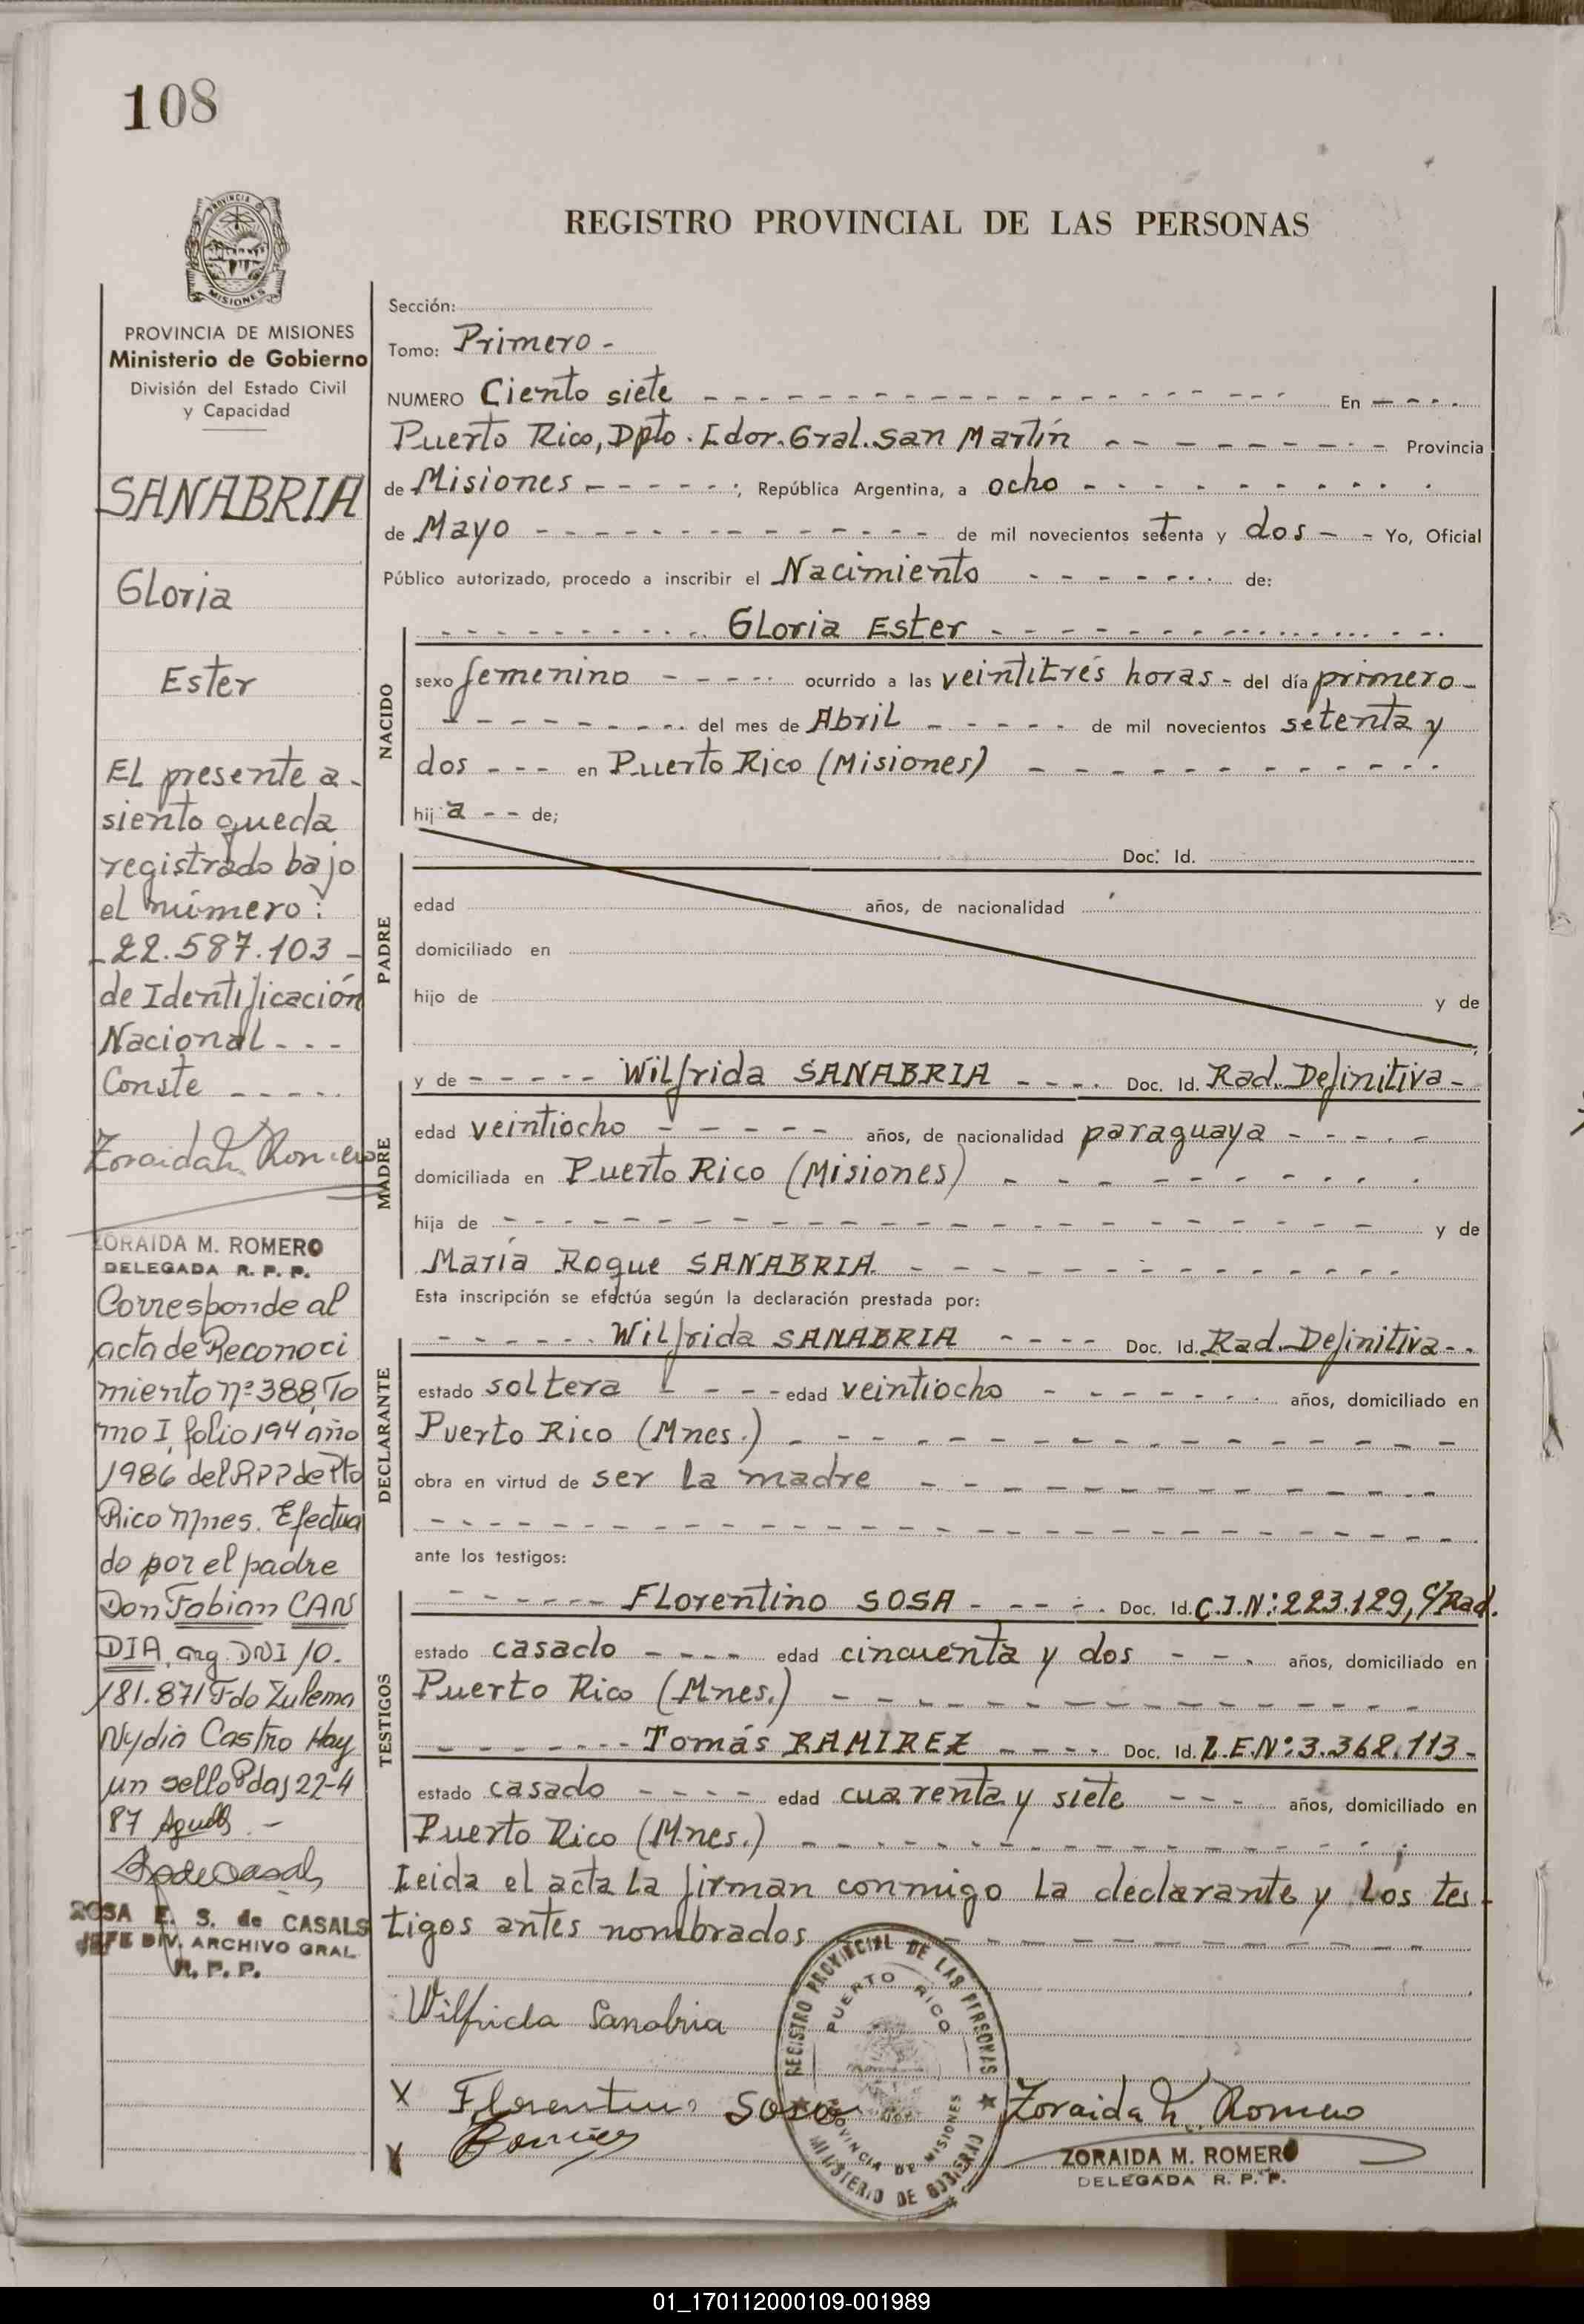 108
PROVINCIA
MISIONES
REGISTRO PROVINCIAL DE LAS PERSONAS
PROVINCIA DE MISIONES
Ministerio de Gobierno
División del Estado Civil
y Capacidad
SANABRIA
Gloria
Ester
El presente a-
siento queda
registrado bajo
el número:
-22.587.103-
de Identificación
Nacional - - -
Conste - - - - -
Zoraida M. Romero
ZORAIDA M. ROMERO
DELEGADA R. P. P.
Corresponde al
acta de Reconoci
miento nº 388, To
mo I, folio 194 año
1986 del RPP de Pto
Rico Mnes. Efectua
do por el padre
Don Fabian CAN
DIA, arg. DNI 10.
181.871 Fdo Zulema
Nydia Castro Hay
un sello Pdas 22-4
87
ROSA E. S. de CASALS
JEFE DIV. ARCHIVO GRAL
R. P. P.
Sección:
Tomo: Primero -
NUMERO Ciento siete - - - En - - - -
Puerto Rico, Dpto. Ldor. Gral. San Martín - - - Provincia
de Misiones - - - - - -; República Argentina, a ocho - - -
de Mayo - - - de mil novecientos setenta y dos - - Yo, Oficial
Público autorizado, procedo a inscribir el Nacimiento - - - de:
NACIDO
- - - Gloria Ester - - -
sexo femenino - - - - - ocurrido a las veintitrés horas - del día primero -
- - - del mes de Abril - - - - - de mil novecientos setenta y
dos - - - en Puerto Rico (Misiones) - - -
hij a - - de;
PADRE
Doc. Id.
edad años, de nacionalidad
domiciliado en
hijo de y de
MADRE
y de - - - - - Wilfrida SANABRIA - - - - Doc. Id. Rad. Definitiva -
edad veintiocho - - - - - años, de nacionalidad paraguaya - - - - -
domiciliada en Puerto Rico (Misiones) - - -
hija de - - - y de
María Roque SANABRIA - - -
Esta inscripción se efectúa según la declaración prestada por:
DECLARANTE
- - - - - - Wilfrida SANABRIA - - - - Doc. Id. Rad. Definitiva - -
estado soltera - - - - edad veintiocho - - - años, domiciliado en
Puerto Rico (Mnes.) - - -
obra en virtud de ser la madre - - -
- - -
ante los testigos:
TESTIGOS
- - - - - - Florentino SOSA - - - - - Doc. Id. C.I.Nº: 223.129, C/Rad.
estado casado - - - - edad cincuenta y dos - - - años, domiciliado en
Puerto Rico (Mnes.) - - -
- - - - - - - Tomás RAMIREZ - - - - - Doc. Id. L.E.Nº: 3.362.113 -
estado casado - - - - edad cuarenta y siete - - - años, domiciliado en
Puerto Rico (Mnes.) - - -
Leida el acta la firman conmigo la declarante y los tes-
tigos antes nombrados - - -
Wilfrida Sanabria
X Florentino Sosa
X
REGISTRO PROVINCIAL DE LAS PERSONAS
PUERTO RICO
PROVINCIA DE MISIONES
MINISTERIO DE GOBIERNO
Zoraida M. Romero
ZORAIDA M. ROMERO
DELEGADA R. P. P.
01_170112000109-001989